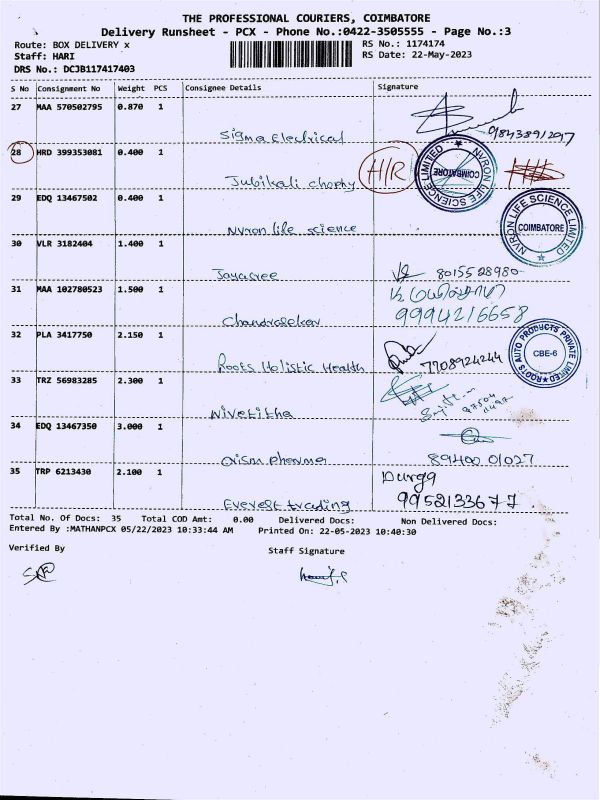 THE PROFESSIONAL COURIERS, COIMBATORE
Delivery Runsheet - PCX - Phone No.:0422-3505555 - Page No.:3
Route: BOX DELIVERY x
RS No.: 1174174
Staff: HARI
RS Date: 22-May-2023
DRS No.: DCJB117417403
S No Consignment No Weight PCS Consignee Details Signature
27 MAA 570502795 0.870 1
Sigma Electrical
28 HRD 399353081 0.400 1
H/R
NVRON LIFE SCIENCE LIMITED COIMBATORE
Jubikali chophy
29 EDQ 13467502 0.400 1
NVRON LIFE SCIENCE LIMITED COIMBATORE
Nvron life science
30 VLR 3182404 1.400 1
Jayasree 8015528980
31 MAA 102780523 1.500 1
Chandrasekar 9994216658
32 PLA 3417750 2.150 1
ROOTS AUTO PRODUCTS PRIVATE LIMITED CBE-6
Roots Holistic Health 7708924244
33 TRZ 56983285 2.300 1
Nivetitha
34 EDQ 13467350 3.000 1
89400 01027
35 TRP 6213430 2.100 1
Durga
Everest trading 9952133677
Total No. Of Docs: 35 Total COD Amt: 0.00 Delivered Docs: Non Delivered Docs:
Entered By :MATHANPCX 05/22/2023 10:33:44 AM Printed On: 22-05-2023 10:40:30
Verified By
Staff Signature